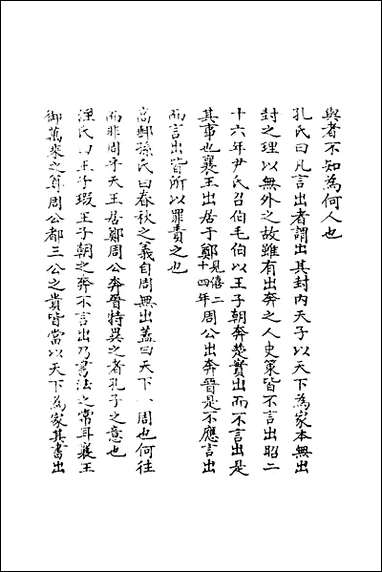 與者不知為何人也
孔氏曰凡言出者謂出其封内天子以天下為家本無出
封之理以無外之故雖有出奔之人史策皆不言出昭二
十六年尹氏召伯毛伯以王子朝奔楚實出而不言出是
其事也襄王出居于鄭見僖二十四年周公出奔晉是不應言出
而言出皆所以罪責之也
高郵孫氏曰春秋之義自周無出蓋曰天下一周也何往
而非周乎天王居鄭周公奔晉特異之者孔子之意也
汪氏曰王子瑕王子朝之奔不言出乃書法之常耳襄王
御萬乘之尊周公都三公之貴皆當以天下為家其書出